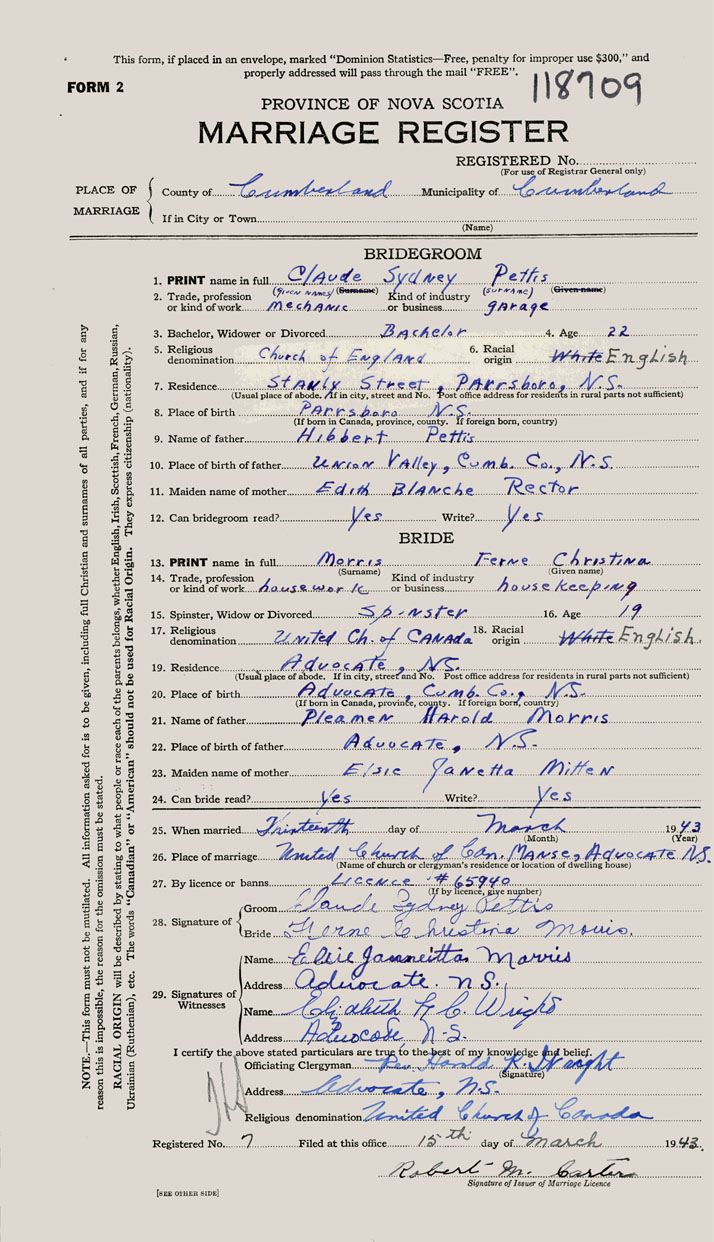 This form, if placed in an envelope, marked "Dominion Statistics—Free, penalty for improper use $300," and
properly addressed will pass through the mail "FREE".
FORM 2
118709
PROVINCE OF NOVA SCOTIA
MARRIAGE REGISTER
REGISTERED No.
(For use of Registrar General only)
PLACE OF MARRIAGE
County of Cumberland Municipality of Cumberland
If in City or Town
(Name)
BRIDEGROOM
1. PRINT name in full Claude Sydney Pettis
(GIVEN NAMES) (Surname) (SURNAME) (Given name)
2. Trade, profession or kind of work Mechanic Kind of industry or business garage
3. Bachelor, Widower or Divorced Bachelor 4. Age 22
5. Religious denomination Church of England 6. Racial origin White English
7. Residence Stanly Street, Parrsboro, N.S.
(Usual place of abode. If in city, street and No. Post office address for residents in rural parts not sufficient)
8. Place of birth Parrsboro N.S.
(If born in Canada, province, county. If foreign born, country)
9. Name of father Hibbert Pettis
10. Place of birth of father Union Valley, Cumb. Co., N.S.
11. Maiden name of mother Edith Blanche Rector
12. Can bridegroom read? Yes Write? Yes
BRIDE
13. PRINT name in full Morris Ferne Christina
(Surname) (Given name)
14. Trade, profession or kind of work housework Kind of industry or business housekeeping
15. Spinster, Widow or Divorced Spinster 16. Age 19
17. Religious denomination United Ch. of Canada 18. Racial origin White English.
19. Residence Advocate, N.S.
(Usual place of abode. If in city, street and No. Post office address for residents in rural parts not sufficient)
20. Place of birth Advocate, Cumb. Co., N.S.
(If born in Canada, province, county. If foreign born, country)
21. Name of father Pleamen Harold Morris
22. Place of birth of father Advocate, N.S.
23. Maiden name of mother Elsie Janetta Mitten
24. Can bride read? Yes Write? Yes
25. When married Thirteenth day of March 1943
(Month) (Year)
26. Place of marriage United Church of Can. Manse, Advocate N.S.
(Name of church or clergyman's residence or location of dwelling house)
27. By licence or banns Licence #65940
(If by licence, give number)
28. Signature of
Groom Claude Sydney Pettis
Bride Ferne Christina Morris.
29. Signatures of Witnesses
Name Elsie Janneitta Morris
Address Advocate. N.S.
Name Elizabeth H. C. Wright
Address Advocate N.S.
I certify the above stated particulars are true to the best of my knowledge and belief.
Officiating Clergyman Rev. Harold K. Wright
(Signature)
Address Advocate, N.S.
Religious denomination United Church of Canada
Registered No. 7 Filed at this office 15th day of March 1943.
Robert M. Carter
Signature of Issuer of Marriage Licence
[SEE OTHER SIDE]
NOTE.—This form must not be mutilated. All information asked for is to be given, including full Christian and surnames of all parties, and if for any
reason this is impossible, the reason for the omission must be stated.
RACIAL ORIGIN will be described by stating to what people or race each of the parents belongs, whether English, Irish, Scottish, French, German, Russian,
Ukrainian (Ruthenian), etc. The words "Canadian" or "American" should not be used for Racial Origin. They express citizenship (nationality).